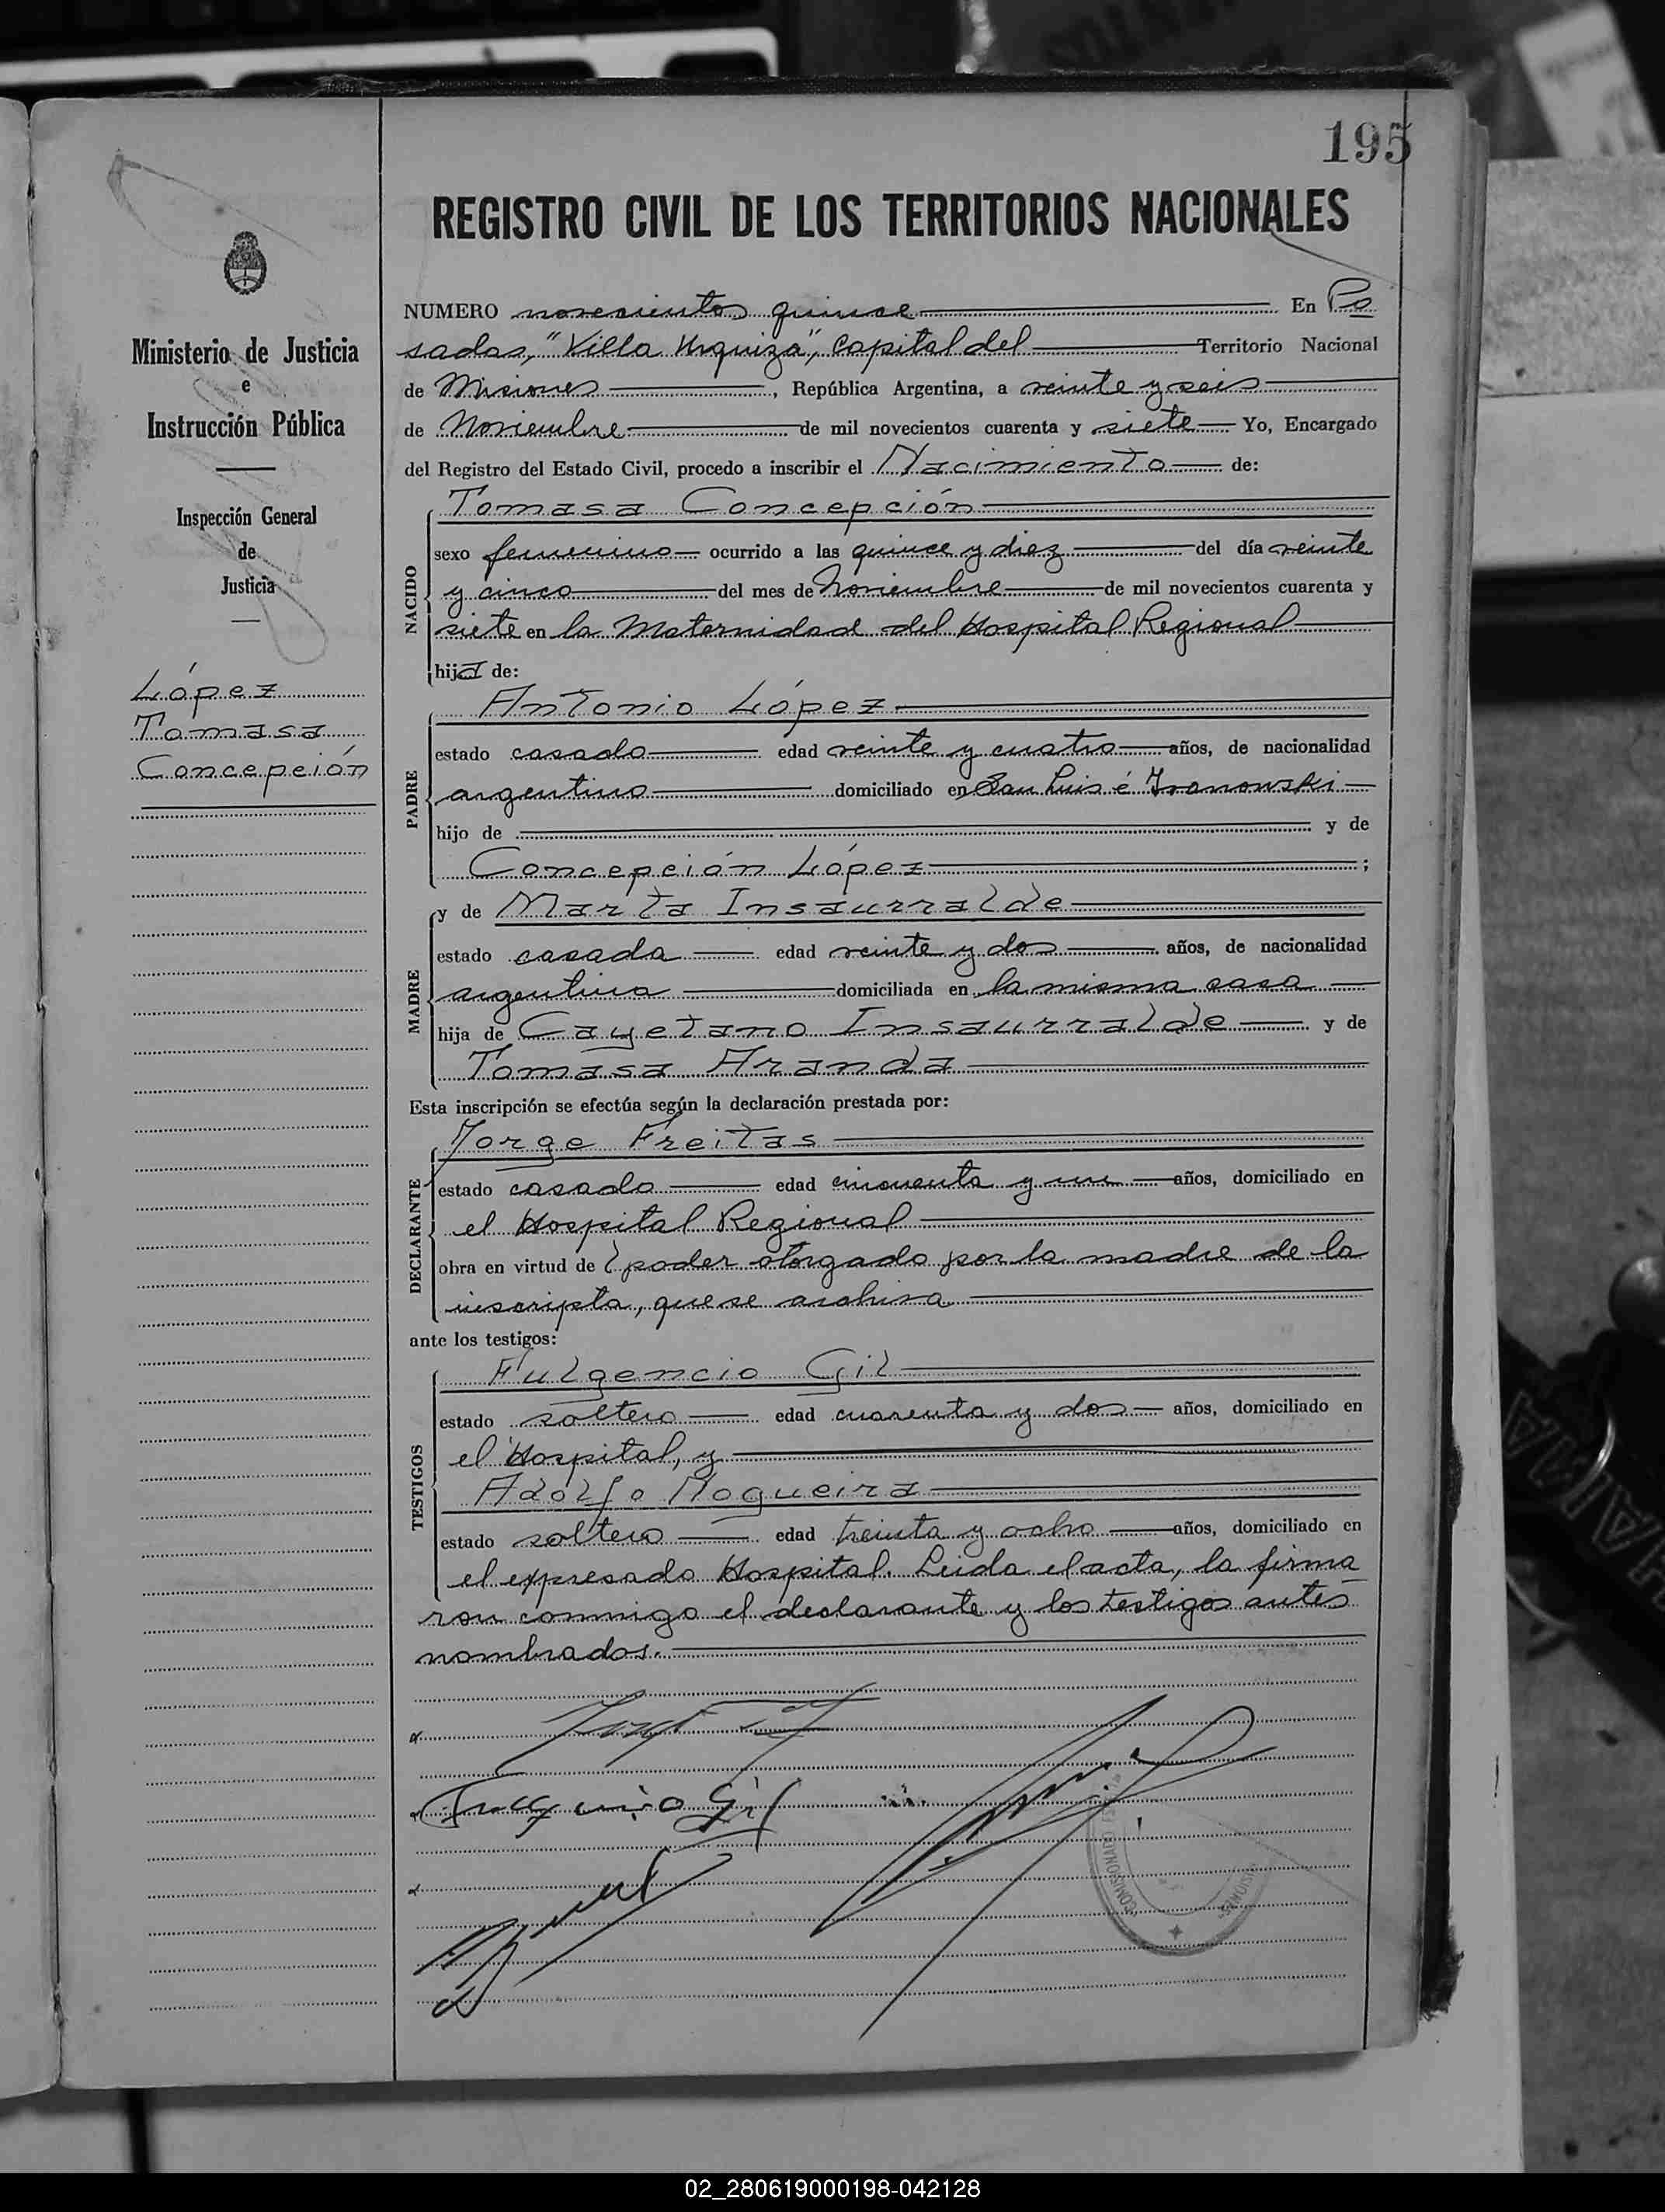 195
REGISTRO CIVIL DE LOS TERRITORIOS NACIONALES
Ministerio de Justicia
e
Instrucción Pública
Inspección General
de
Justicia
López
Tomasa
Concepción
NUMERO novecientos quince En Po
sadas, "Villa Urquiza", Capital del Territorio Nacional
de Misiones, República Argentina, a veinte y seis
de Noviembre de mil novecientos cuarenta y siete Yo, Encargado
del Registro del Estado Civil, procedo a inscribir el Nacimiento de:
Tomasa Concepción
NACIDO
sexo femenino ocurrido a las quince y diez del día veinte
y cinco del mes de Noviembre de mil novecientos cuarenta y
siete en la Maternidad del Hospital Regional
hija de:
Antonio López
PADRE
estado casado edad veinte y cuatro años, de nacionalidad
argentino domiciliado en San Luis é Ivanowski
hijo de y de
Concepción López;
MADRE
y de Marta Insaurralde
estado casada edad veinte y dos años, de nacionalidad
argentina domiciliada en la misma casa
hija de Cayetano Insaurralde y de
Tomasa Aranda
Esta inscripción se efectúa según la declaración prestada por:
Jorge Freitas
DECLARANTE
estado casado edad cincuenta y un años, domiciliado en
el Hospital Regional
obra en virtud de poder otorgado por la madre de la
inscripta, que se archiva
ante los testigos:
Fulgencio Gil
TESTIGOS
estado soltero edad cuarenta y dos años, domiciliado en
el Hospital, y
Adolfo Nogueira
estado soltero edad treinta y ocho años, domiciliado en
el expresado Hospital. Leida el acta, la firma
ron conmigo el declarante y los testigos antes
nombrados.
Fulgencio Gil
MISIONES
02_280619000198-042128